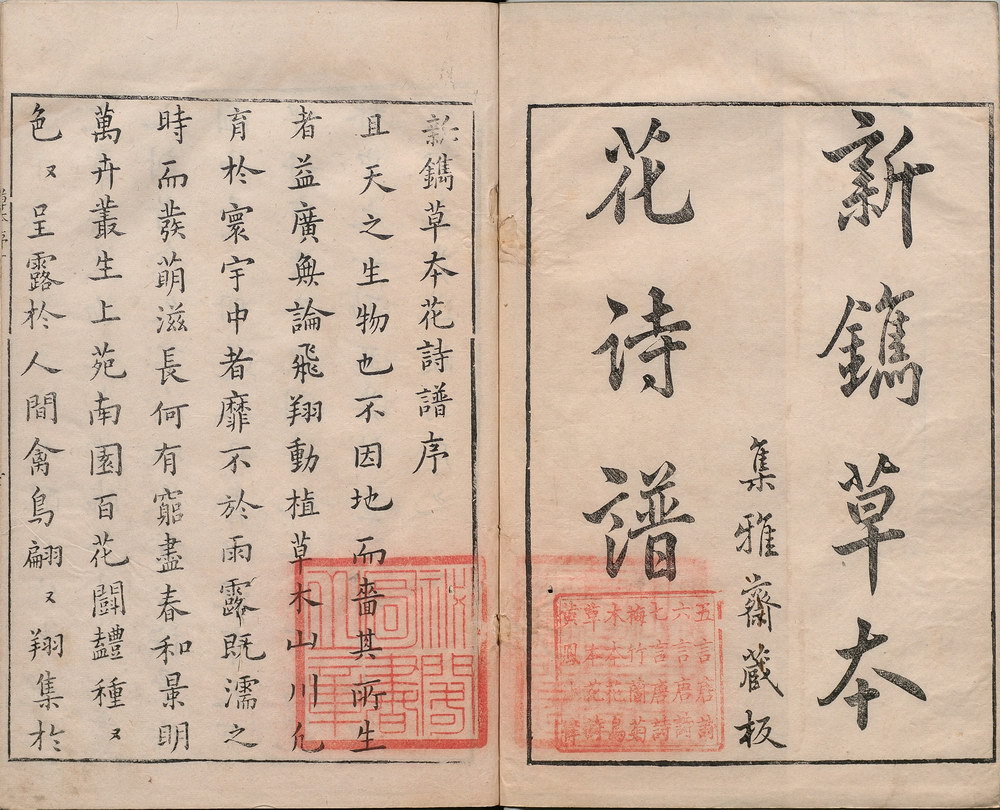 新鐫草本
集雅齋藏板
花诗譜
五言唐詩
六言唐詩
七言唐詩
梅竹蘭菊
木本花鳥
草本花詩
新鐫草本花詩譜序
且天之生物也不因地而嗇其所生
者益廣無論飛翔動植草木山川凡
育於寰宇中者靡不於雨露既濡之
時而發萌滋長何有窮盡春和景明
萬卉叢生上苑南園百花鬪豔種々
色々呈露於人間禽鳥翩々翔集於
秘閣
圖書
之章